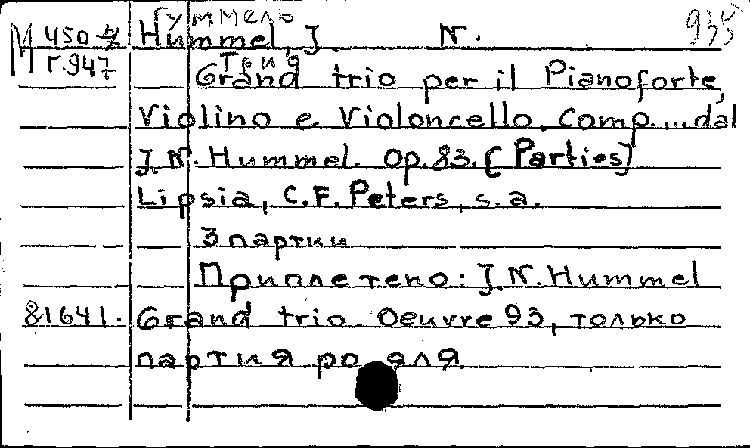 Гуммель
M 450-4 Hummel, J. N. 935
г.947 Трио
Grand trio per il Pianoforte,
Violino e Violoncello. Comp. ... dal
J. N. Hummel. Op. 83. [Parties]
Lipsia, C. F. Peters, s. a.
3 партии
Приплетено: J. N. Hummel
81641. Grand trio. Oeuvre 93, только
партия рояля.